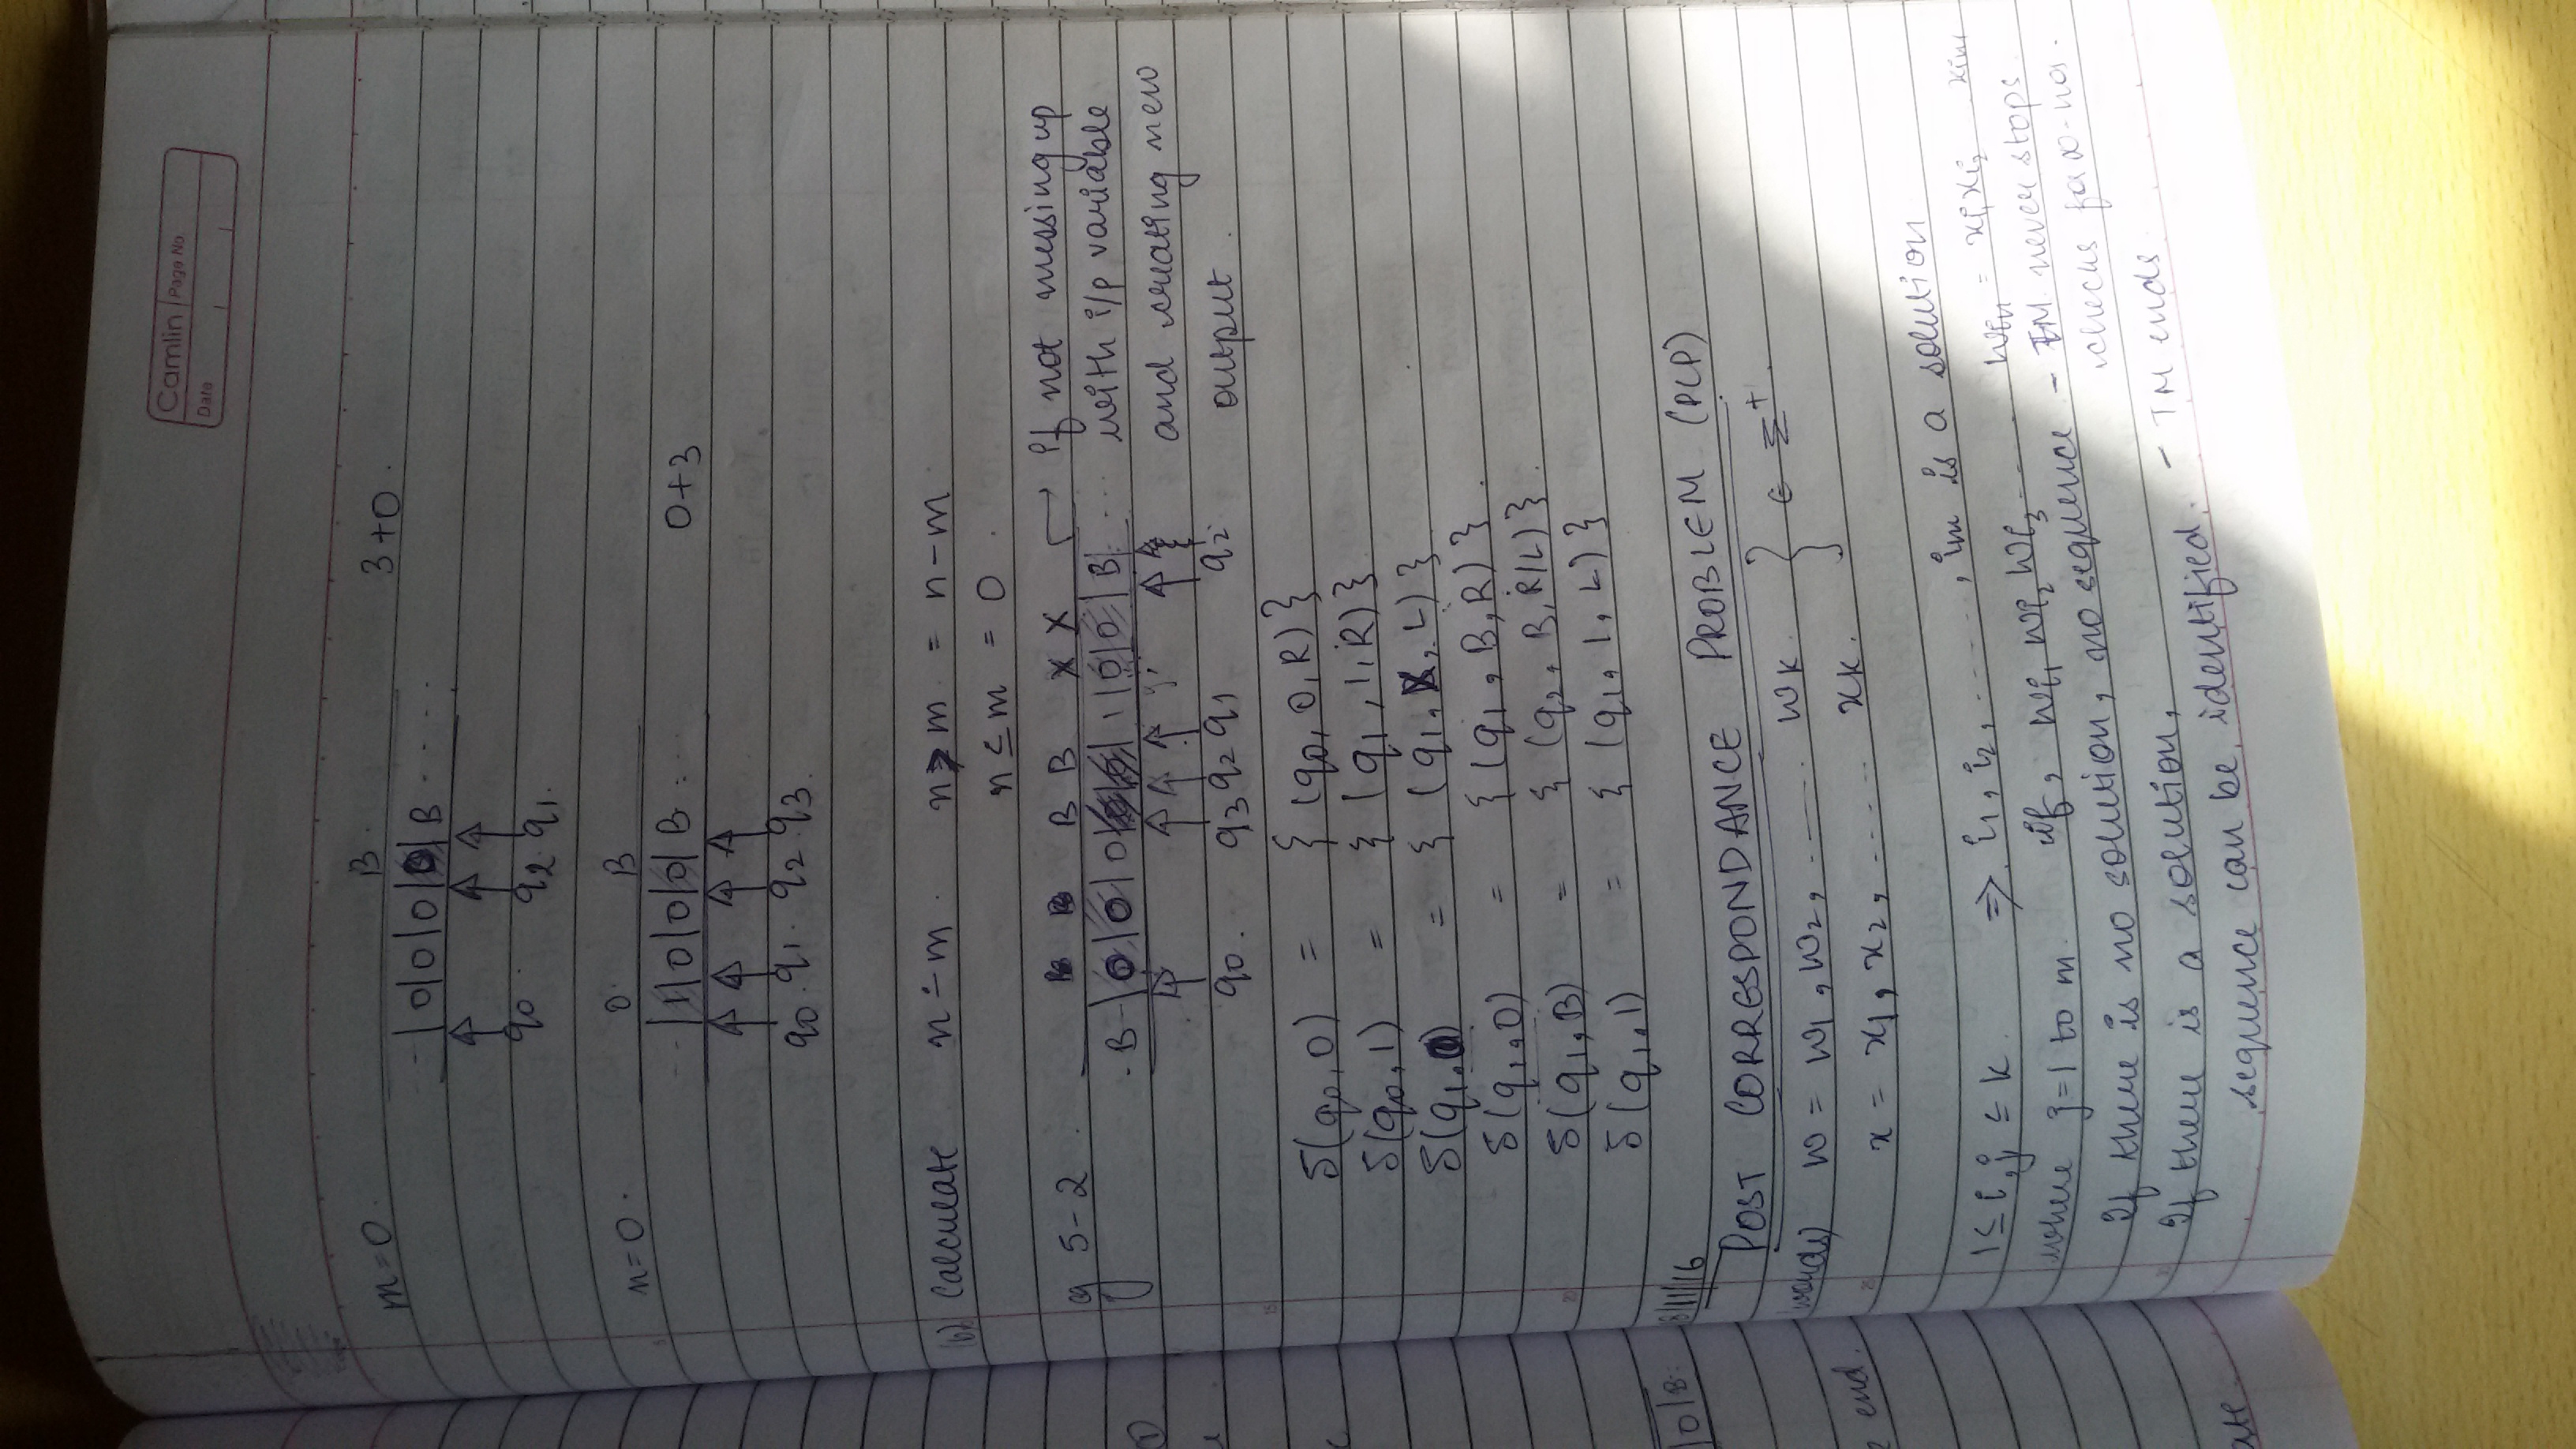 Camlin Page No.
Date
m=0. B. 3+0.
|0|0|0|0|B ....
q0. q2. q1.
n=0. 0. B
|1|0|0|0|B ... 0+3
q0. q1. q2 q3.
(b) Calculate n ∸ m. n > m = n-m
n ≤ m = 0.
eg 5-2. B B B B X X → If not messing up
B |0|0|0|0|0|1|0|0|B ... with i/p variable
and creating new
q0. q3 q2 q1 q2 output.
δ(q0,0) = {(q0,0,R)}
δ(q0,1) = {(q1,1,R)}
δ(q1,0) = {(q1,X,L)}
δ(q1,0) = {(q1,B,R)}.
δ(q1,B) = {(q2,B,R/L)}.
δ(q1,1) = {(q1,1,L)}
|0|B
8/11/16
POST CORRESPONDANCE PROBLEM (PCP)
(words) w = w1, w2, ...... wk. } ∈ Σ+
x = x1, x2, ...... xk.
end.
1 ≤ i,j ≤ k. ⇒ i1, i2, ......, im is a solution
where j=1 to m. if, wi1 wi2 wi3 .... wim = xi1 xi2 xim
If there is no solution, no sequence - TM never stops.
checks for ∞-no.
If there is a solution,
sequence can be identified. - TM ends.